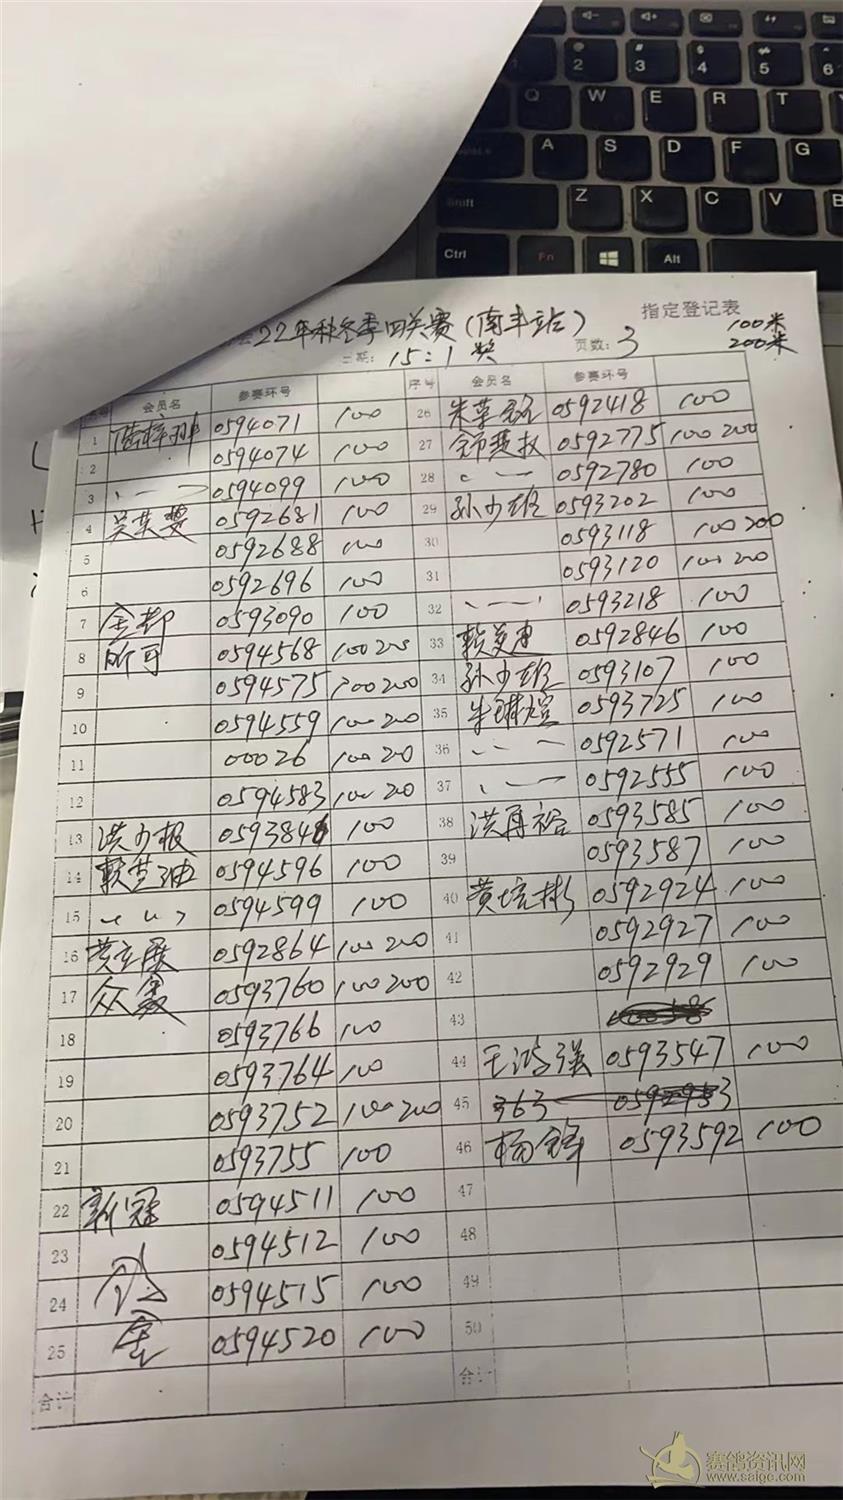 2 3 4 5 6
Q W E R T
A S D F G
Shift Z X C V B
Ctrl Fn Alt
指定登记表
22年秋冬季四关赛(南丰站) 100米
日期: 15:1奖 页数: 3 200米
序号 会员名 参赛环号 序号 会员名 参赛环号
1 0594071 100 26 0592418 100
2 0594074 100 27 0592775 100 200
3 0594099 100 28 0592780 100
4 0592681 100 29 孙少雄 0593202 100
5 0592688 100 30 0593118 100 200
6 0592696 100 31 0593120 100 200
7 金都 0593090 100 32 0593218 100
8 所可 0594568 100 200 33 0592846 100
9 0594575 200 200 34 孙少雄 0593107 100
10 0594559 100 200 35 朱琳煊 0593725 100
11 00026 100 200 36 0592571 100
12 0594583 100 200 37 0592555 100
13 洪少根 059384 100 38 洪再裕 0593585 100
14 0594596 100 39 0593587 100
15 0594599 100 40 黄培彬 0592924 100
16 黄立展 0592864 100 200 41 0592927 100
17 众鑫 0593760 100 200 42 0592929 100
18 0593766 100 43
19 0593764 100 44 王鸿强 0593547 100
20 0593752 100 200 45 363 0592953
21 0593755 100 46 杨锋 0593592 100
22 新冠 0594511 100 47
23 0594512 100 48
24 鸽 0594515 100 49
25 舍 0594520 100 50
合计 合计
赛鸽资讯网
www.saige.com